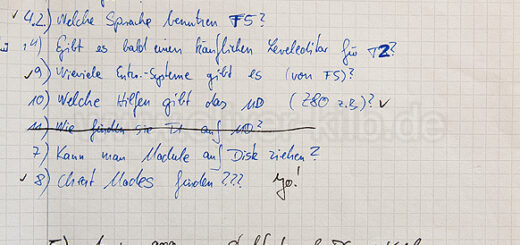 ✓ 4.2) Welche Sprache benutzen F5?
, 4) Gibt es bald einen käuflichen Leveleditor für T2?
✓ 9) Wieviele Entw.-Systeme gibt es (von F5)?
10) Welche Hilfen gibt das MD (Z80 z.B.)? ✓
11) Wie finden sie T1 auf MD?
7) Kann man Module auf Disk ziehen?
✓ 8) Cheat Modes finden??? Yo!